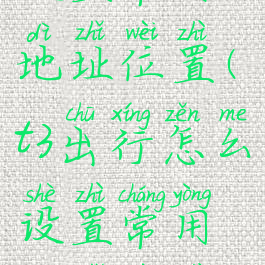 dì zhǐ wèi zhì
地址位置(
chū xíng zěn me
t3出行怎么
shè zhì cháng yòng
设置常用